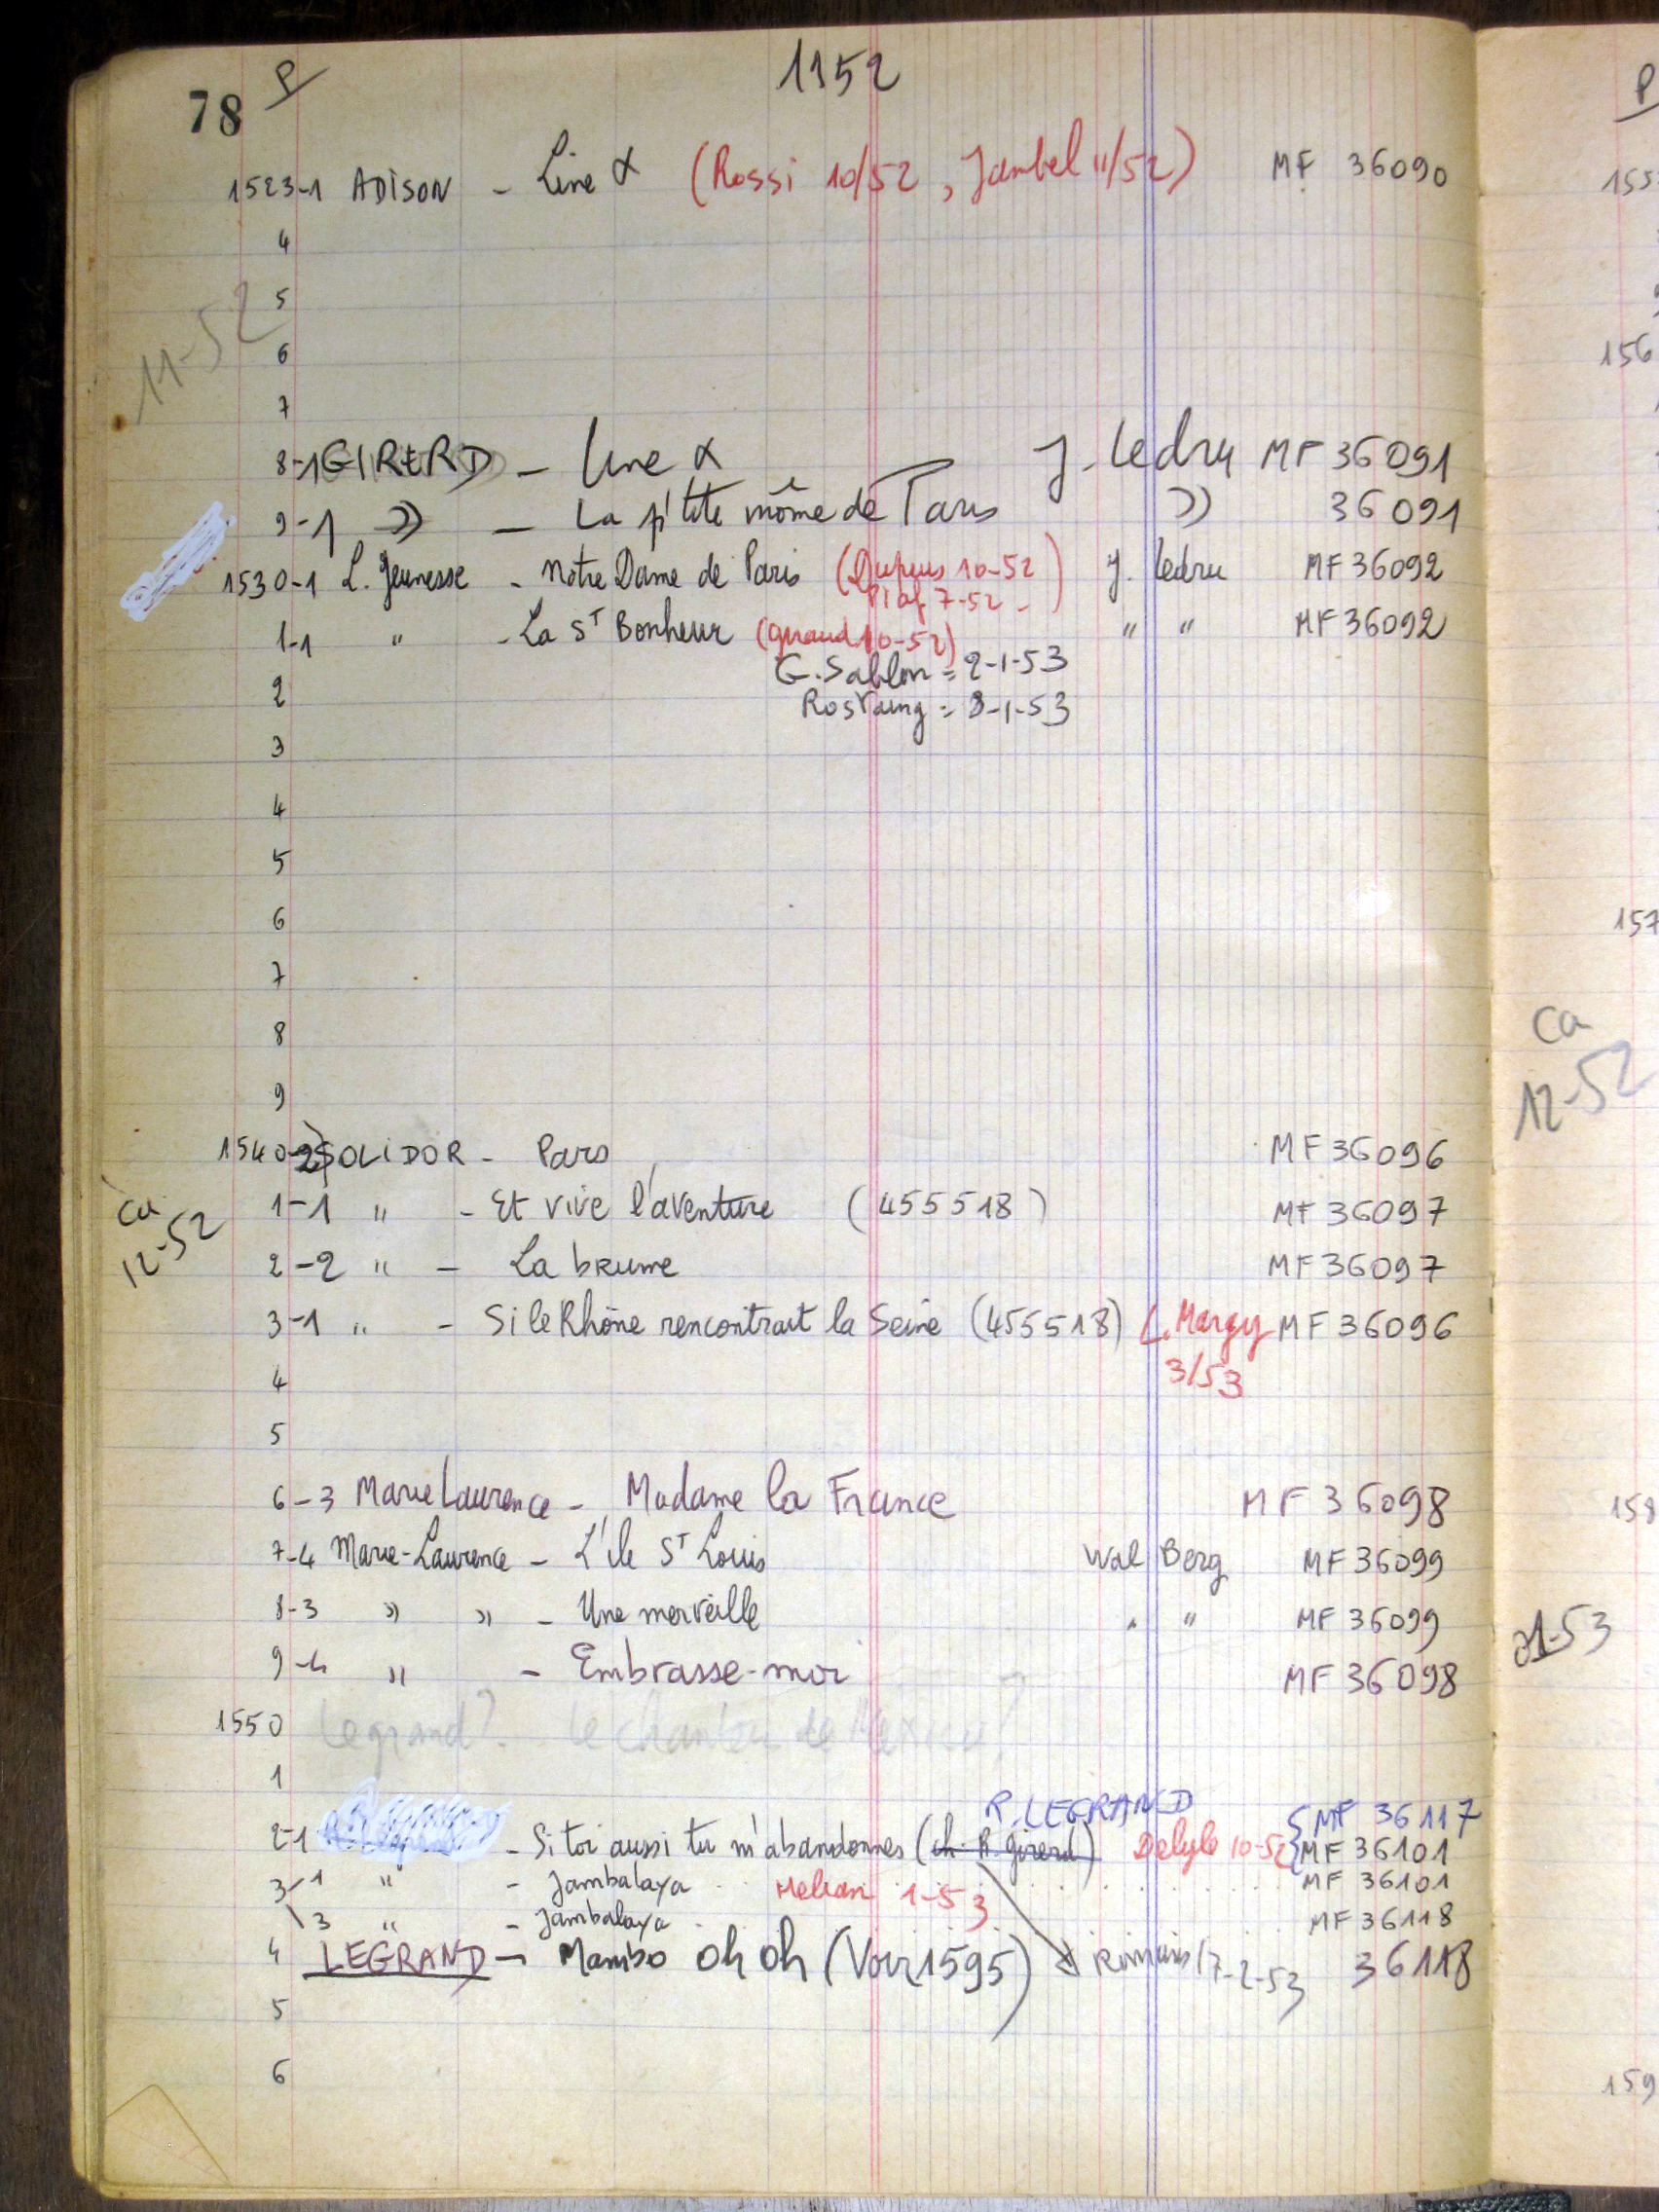 78 P 1152
1523-1 ADISON - Line α (Rossi 10/52, Jambel 11/52) MF 36090
4
5
11-52
6
7
8-1 GIRERD - Line α J. Ledru MF 36091
9-1 » - La p'tite môme de Paris » 36091
1530-1 L. Jeunesse - Notre Dame de Paris (Dupuis 10-52 J. Ledru MF 36092
Piaf 7-52 - )
1-1 " - La St Bonheur (Giraud 10-52) " " MF 36092
G. Sablon = 2-1-53
2 Rostaing = 8-1-53
3
4
5
6
7
8
9
1540-2 SOLIDOR - Paris MF 36096
1-1 " - Et vive l'aventure (455518) MF 36097
ca
12-52
2-2 " - La brume MF 36097
3-1 " - Si le Rhône rencontrait la Seine (455518) L. Margy MF 36096
3/53
4
5
6-3 Marie Laurence - Madame la France MF 36098
7-4 Marie-Laurence - L'île St Louis Wal Berg MF 36099
8-3 » » - Une merveille " " MF 36099
9-4 » - Embrasse-moi MF 36098
1550 Legrand? le chanteur de Mexico?
1
R. LEGRAND { MF 36117
2-1 - Si toi aussi tu m'abandonnes (ch. R. Girerd) Delyle 10-52 MF 36101
3-1 " - Jambalaya 1-53 MF 36101
3 " - Jambalaya MF 36118
4 LEGRAND - Mambo Oh Oh (Voir 1595) 17-2-53 36118
5
6
P
155
156
157
ca
12-52
158
01-53
159